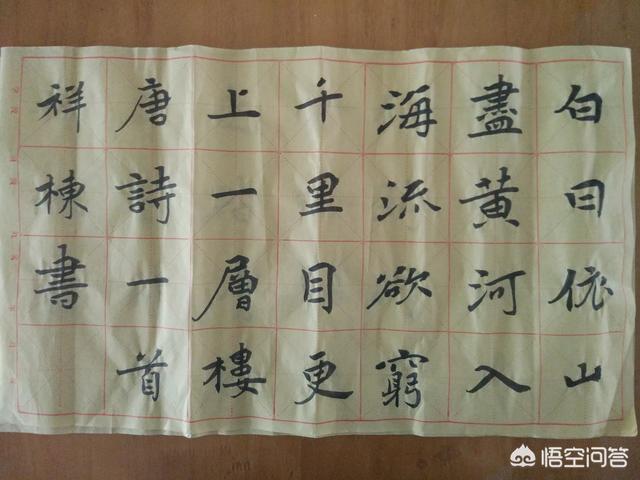 白日依山
盡黄河入
海流欲窮
千里目更
上一層樓
唐詩一首
祥棟書
悟空问答